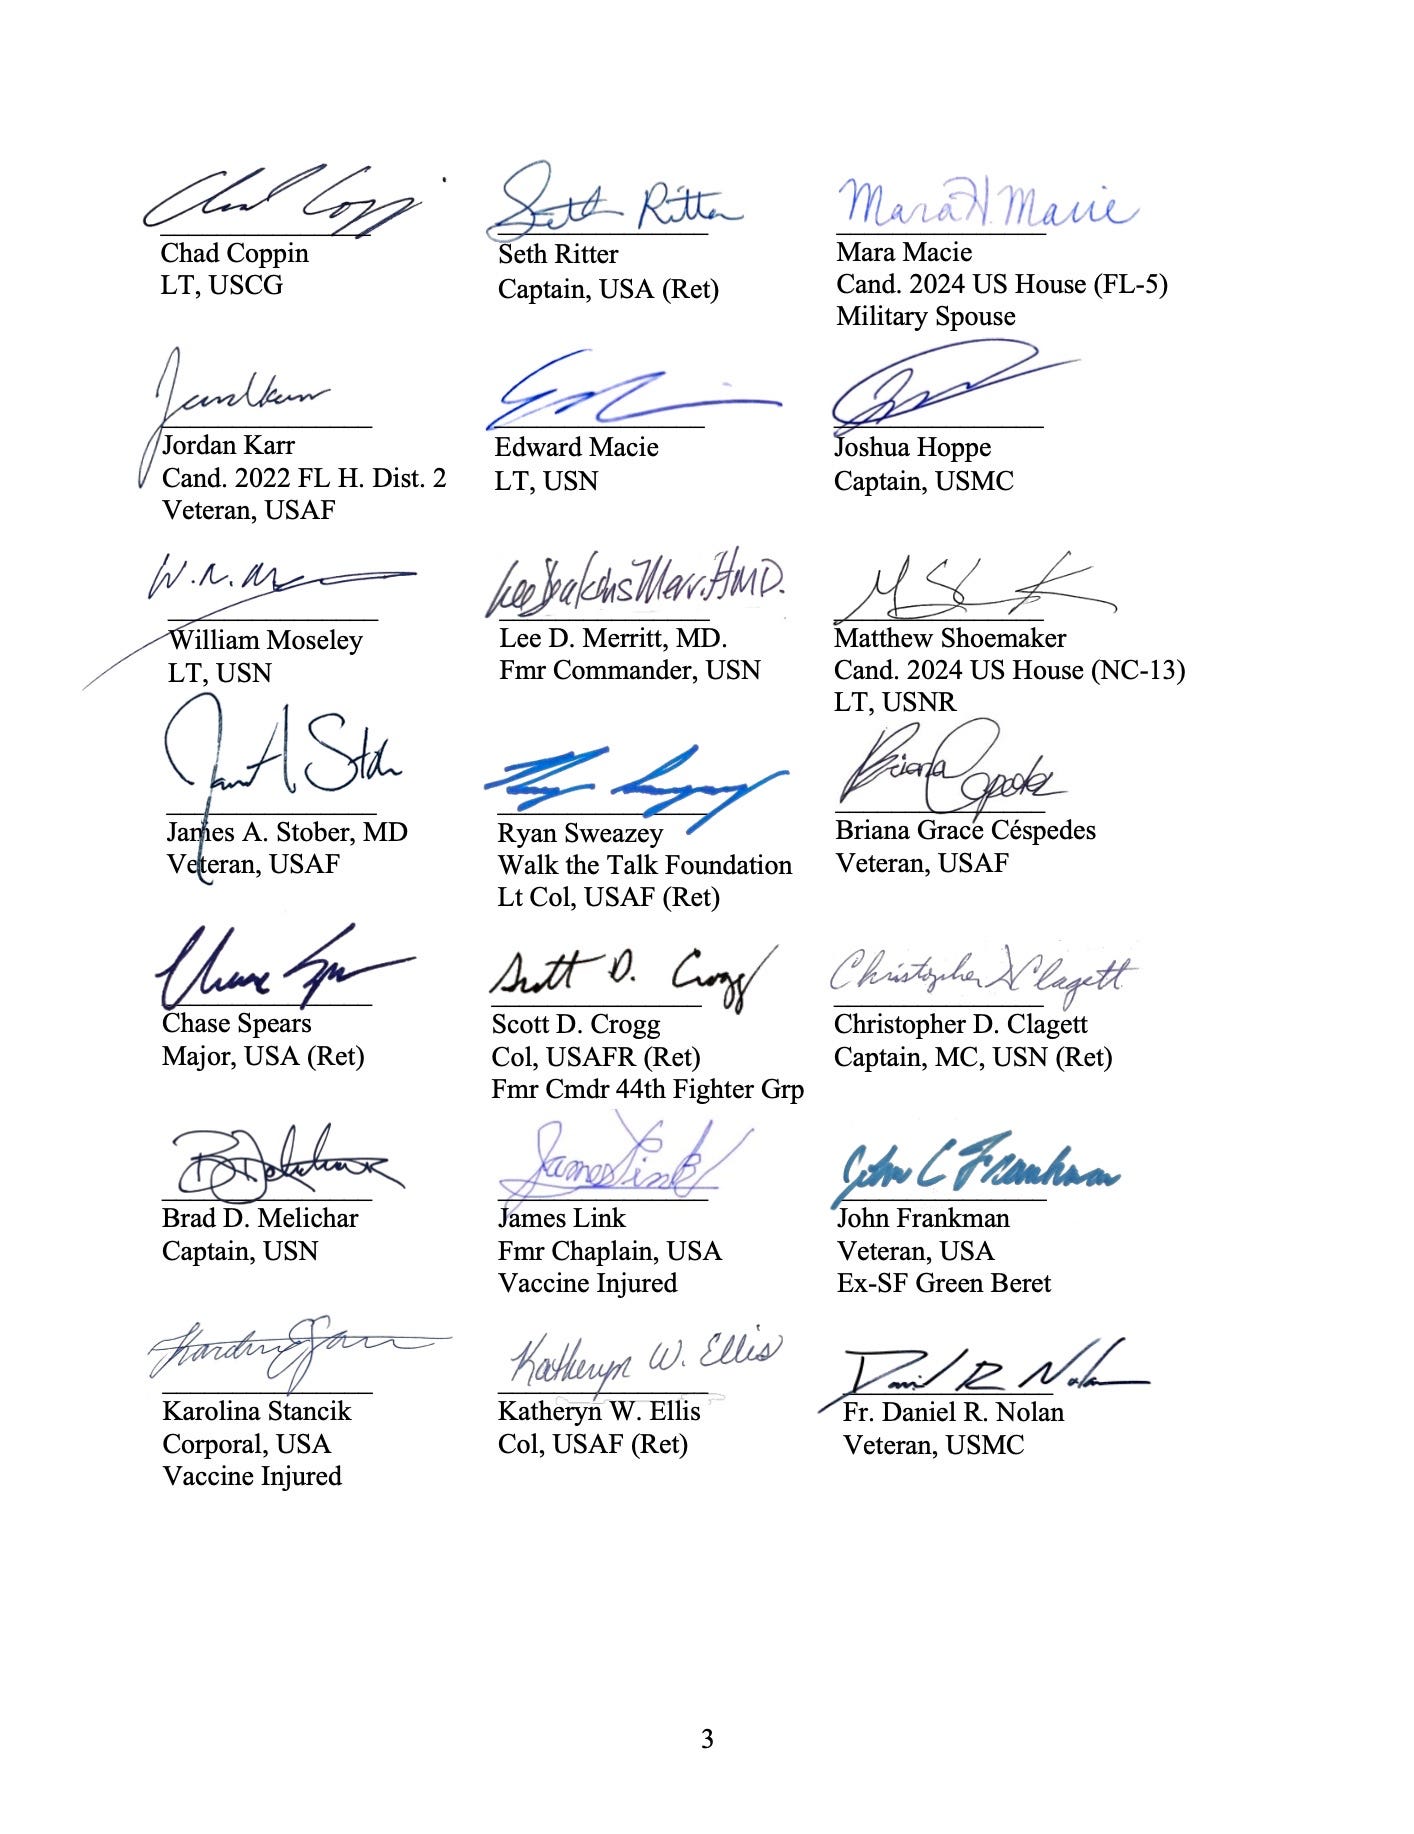 Chad Coppin
LT, USCG
Seth Ritter
Seth Ritter
Captain, USA (Ret)
Mara H. Macie
Mara Macie
Cand. 2024 US House (FL-5)
Military Spouse
Jordan Karr
Cand. 2022 FL H. Dist. 2
Veteran, USAF
Edward Macie
LT, USN
Joshua Hoppe
Captain, USMC
William Moseley
LT, USN
Lee D. Merritt, MD.
Fmr Commander, USN
Matthew Shoemaker
Cand. 2024 US House (NC-13)
LT, USNR
James A. Stober, MD
Veteran, USAF
Ryan Sweazey
Walk the Talk Foundation
Lt Col, USAF (Ret)
Briana Grace Céspedes
Veteran, USAF
Chase Spears
Major, USA (Ret)
Scott D. Crogg
Scott D. Crogg
Col, USAFR (Ret)
Fmr Cmdr 44th Fighter Grp
Christopher D Clagett
Christopher D. Clagett
Captain, MC, USN (Ret)
Brad D. Melichar
Captain, USN
James Link
James Link
Fmr Chaplain, USA
Vaccine Injured
John C Frankman
John Frankman
Veteran, USA
Ex-SF Green Beret
Karolina Stancik
Corporal, USA
Vaccine Injured
Katheryn W. Ellis
Katheryn W. Ellis
Col, USAF (Ret)
Daniel R Nolan
Fr. Daniel R. Nolan
Veteran, USMC
3